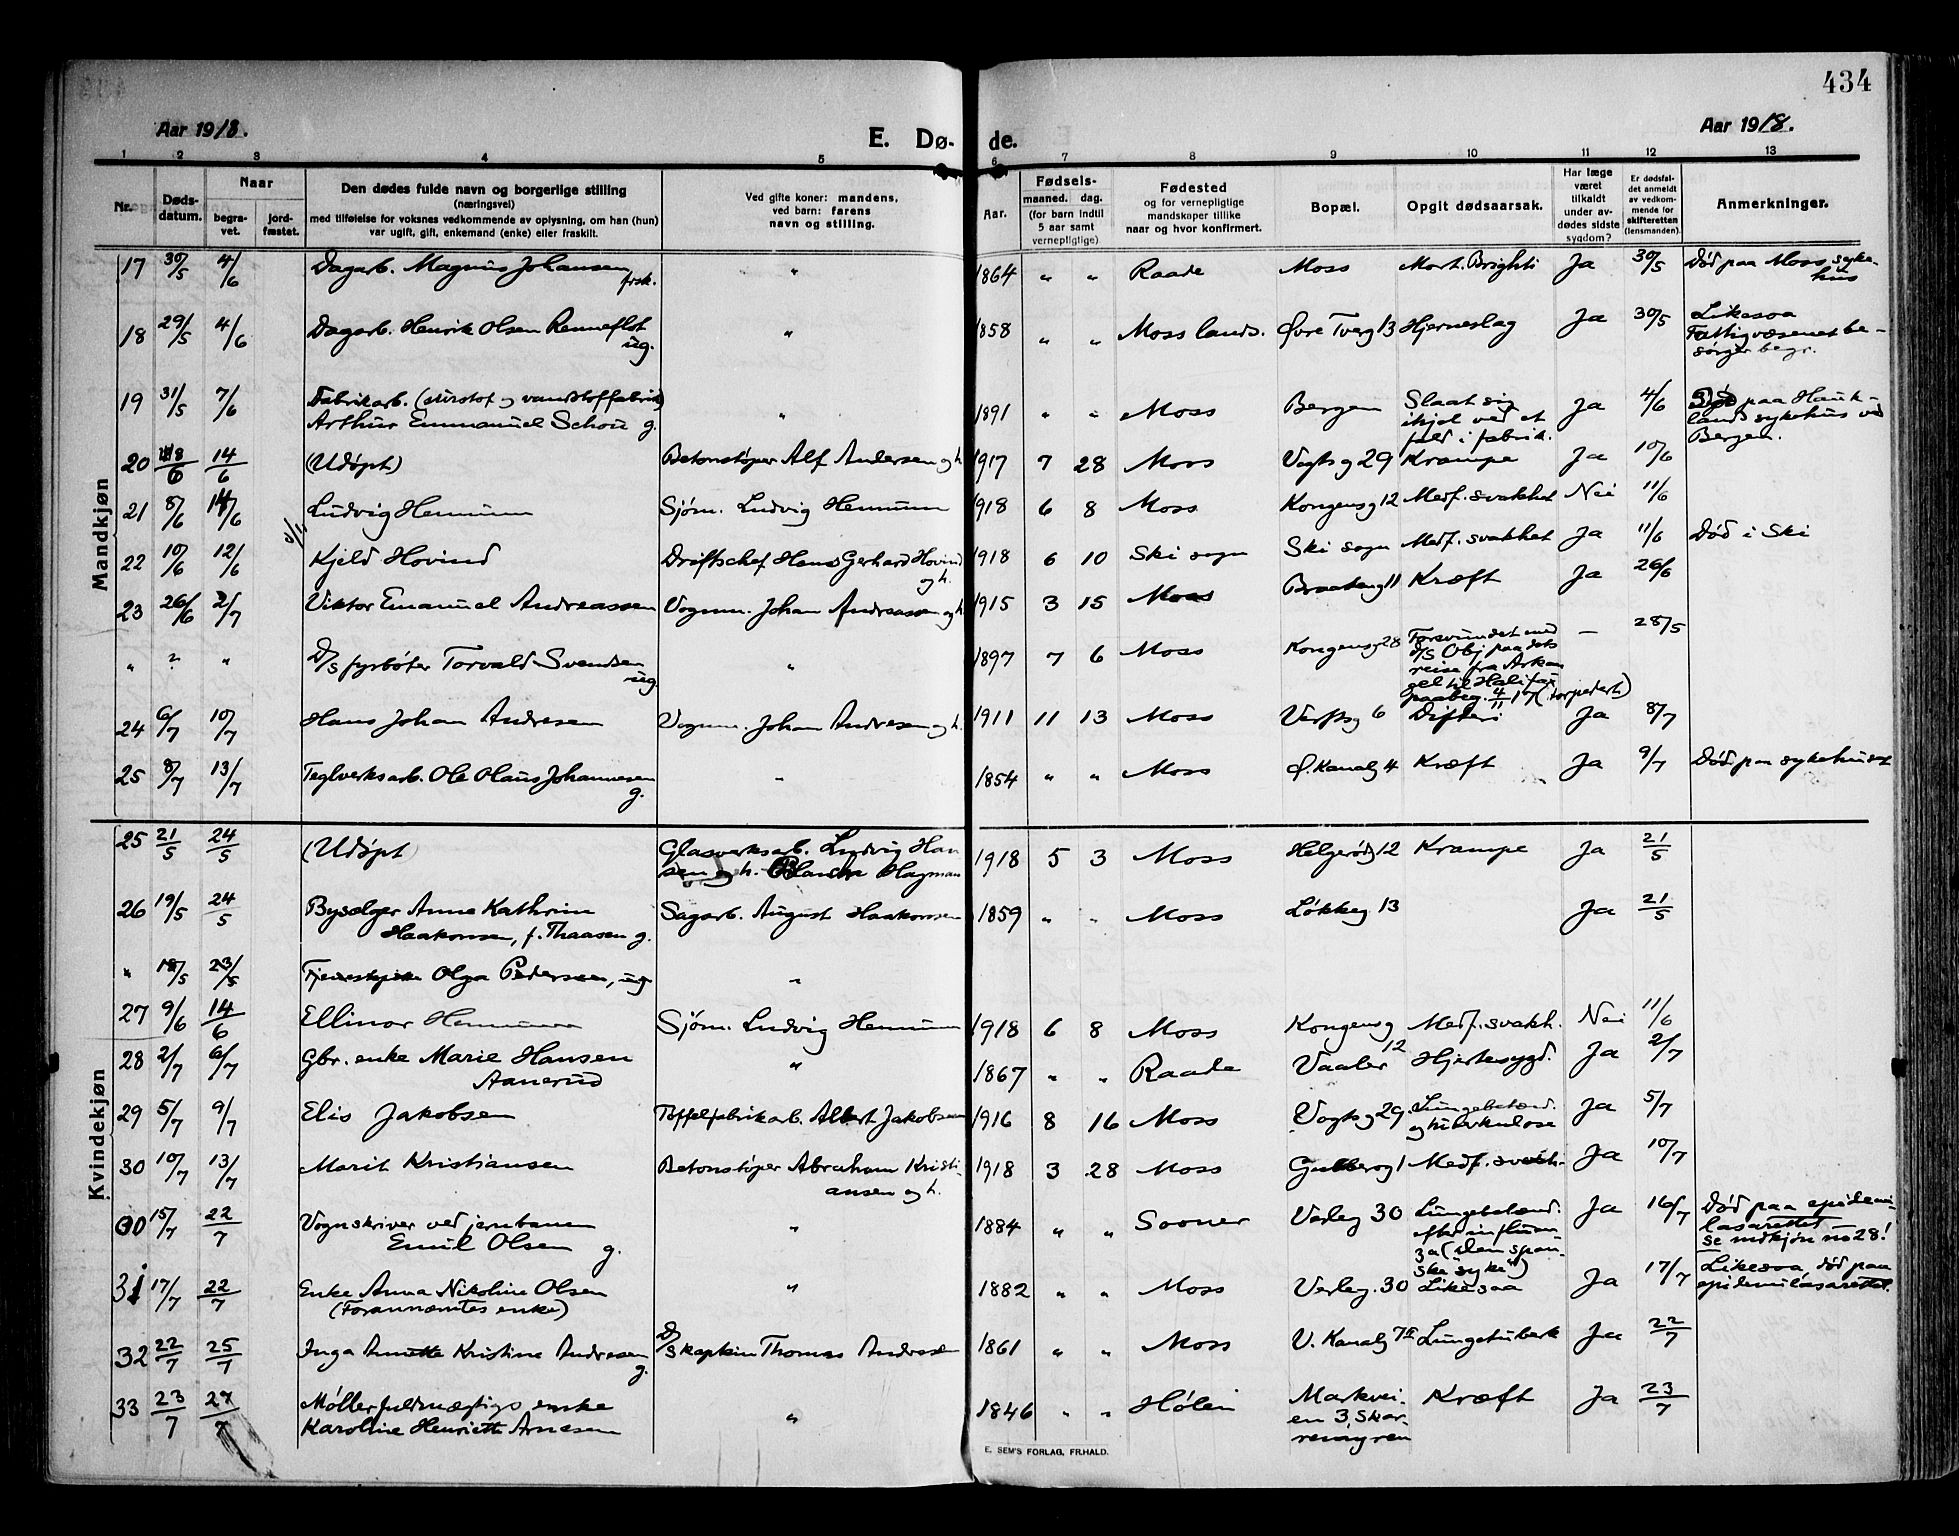 434
Aar 1918.
E. Dø-
de.
Aar 1918.
1 2 3 4 5 6 7 8 9 10 11 12 13
Nr.
Døds-
datum.
Naar
begra-
vet.
jord-
fæstet.
Den dødes fulde navn og borgerlige stilling
(næringsvei)
med tilføielse for voksnes vedkommende av oplysning, om han (hun)
var ugift, gift, enkemand (enke) eller fraskilt.
Ved gifte koner: mandens,
ved barn: farens
navn og stilling.
Aar.
Fødsels-
maaned. dag.
(for barn indtil
5 aar samt
vernepligtige)
Fødested
og for vernepligtige
mandskaper tillike
naar og hvor konfirmert.
Bopæl.
Opgit dødsaarsak.
Har læge
været
tilkaldt
under av-
dødes sidste
sygdom?
Er dødsfal-
det anmeldt
av vedkom-
mende for
skifteretten
(lensmanden).
Anmerkninger.
Mandkjøn
17 30/5 4/6 Dagarb. Magnus Johansen " 1864 " " Raade Moss Mort. Brighti Ja 30/5 Død paa Moss syke-
frsk. hus
18 29/5 4/6 Dagarb. Henrik Olsen Renneflot " 1858 " " Moss lands. Øvre Tverg 13 Hjerneslag Ja 30/5 Likesaa
ug. Fattigvæsenet be-
sørger begr.
19 31/5 7/6 Fabrikarb. (surstof og vandstoffabrik) " 1891 " " Moss Bergen Slaat sig Ja 4/6 Død paa Hauk-
Arthur Emmanuel Schou g. ihjel ved et lands sykehus ved
fald i fabrik. Bergen.
20 8/6 14/6 (Udøpt) Betonstøper Alf Andersen og h. 1917 7 28 Moss Vogtsg 29 Krampe Ja 10/6
21 8/6 14/6 Ludvig Hennum Sjøm. Ludvig Hennum 1918 6 8 Moss Kongensg 12 Medf. svakhet Nei 11/6
22 10/6 12/6 Kjeld Hovind Driftschef Hans Gerhard Hovind 1918 6 10 Ski sogn Ski sogn Medf. svakhet Ja 11/6 Død i Ski
og h.
23 26/6 2/7 Viktor Emanuel Andreassen Vognm. Johan Andreassen og h. 1915 3 15 Moss Braateng 11 Kræft Ja 26/6
" ? " D/S fyrbøter Torvald Svendsen " 1897 7 6 Moss Kongensg 28 Forsvundet med — 28/5
ug. D/S Obj paa dets
reise fra Arkan
gel til Halifax
paabeg. 4/11 17 (torpedert)
24 6/7 10/7 Hans Johan Andresen Vognm. Johan Andresen og h. 1911 11 13 Moss Verftsg 6 Difteri Ja 8/7
25 8/7 13/7 Teglverksarb. Ole Olaus Johannesen " 1854 " " Moss Ø. Kanalg 4 Kræft Ja 9/7 Død paa sykehuset
g.
Kvindekjøn
25 21/5 24/5 (Udøpt) Glasverksarb. Ludvig Han 1918 5 3 Moss Helgerødg 12 Krampe Ja 21/5
sen og h. Blanca Hagman
26 19/5 24/5 Bysælger Anne Kathrine Sagarb. August Haakonsen 1859 " " Moss Løkkeg 13 Ja 21/5
Haakonsen, f. Thaasen g.
" 18/5 23/5 Tjenestepike Olga Pedersen, ug "
27 9/6 14/6 Ellinor Hennum Sjøm. Ludvig Hennum 1918 6 8 Moss Kongensg 12 Medf. svakh. Nei 11/6
28 2/7 6/7 Gbr. enke Marie Hansen " 1867 " " Raade Vaaler Hjertesygd. Ja 2/7
Aanerud
29 5/7 9/7 Elis Jakobsen Tøffelfabrikarb. Albert Jakobsen 1916 8 16 Moss Vogtsg 29. Lungebetænd. Ja 5/7
og tuberkulose
30 10/7 13/7 Marit Kristiansen Betonstøper Abraham Kristi- 1918 3 28 Moss Gudberg 1 Medf. svakh. Ja 10/7
ansen og h.
30 15/7 22/7 Vognskriver ved jernbanen " 1884 " " Sooner Verleg 30 Lungebetænd. Ja 16/7 Død paa epidemi-
Emil Olsen g. efter influen- lasarettet
za (den span- se mdkjøn no 28!
ske syke")
31 17/7 22/7 Enke Anna Nikoline Olsen " 1882 " " Moss Verleg. 30 Likesaa Ja 17/7 Likesaa, død paa
(Forannævntes enke) epidemilasarettet.
32 22/7 25/7 Inga Annette Kristine Andresen D/S kaptein Thomas Andresen 1861 " " Moss V. Kanalg 7a Lungetuberk Ja 22/7
g.
33 23/7 27/7 Møllerfuldmægtigs enke " 1846 " " Hølen Markvei- Kræft Ja 23/7
Karoline Henriette Arnesen en 3, Skar-
revangen
E. SEM'S FORLAG, FR.HALD.